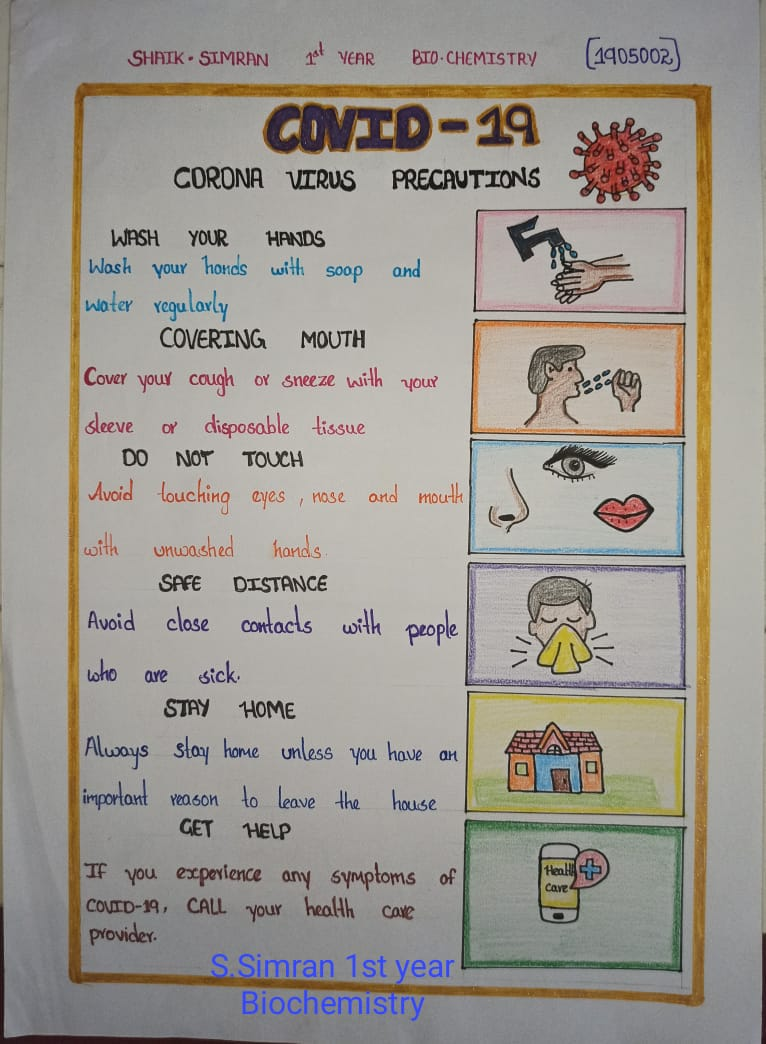 SHAIK. SIMRAN 1st YEAR BIO.CHEMISTRY [1905002]
COVID-19
CORONA VIRUS PRECAUTIONS
WASH YOUR HANDS
Wash your hands with soap and
water regularly
COVERING MOUTH
Cover your cough or sneeze with your
sleeve or disposable tissue
DO NOT TOUCH
Avoid touching eyes, nose and mouth
with unwashed hands.
SAFE DISTANCE
Avoid close contacts with people
who are sick.
STAY HOME
Always stay home unless you have an
important reason to leave the house
GET HELP
If you experience any symptoms of
COVID-19, CALL your health care
provider.
Health
care
S.Simran 1st year
Biochemistry